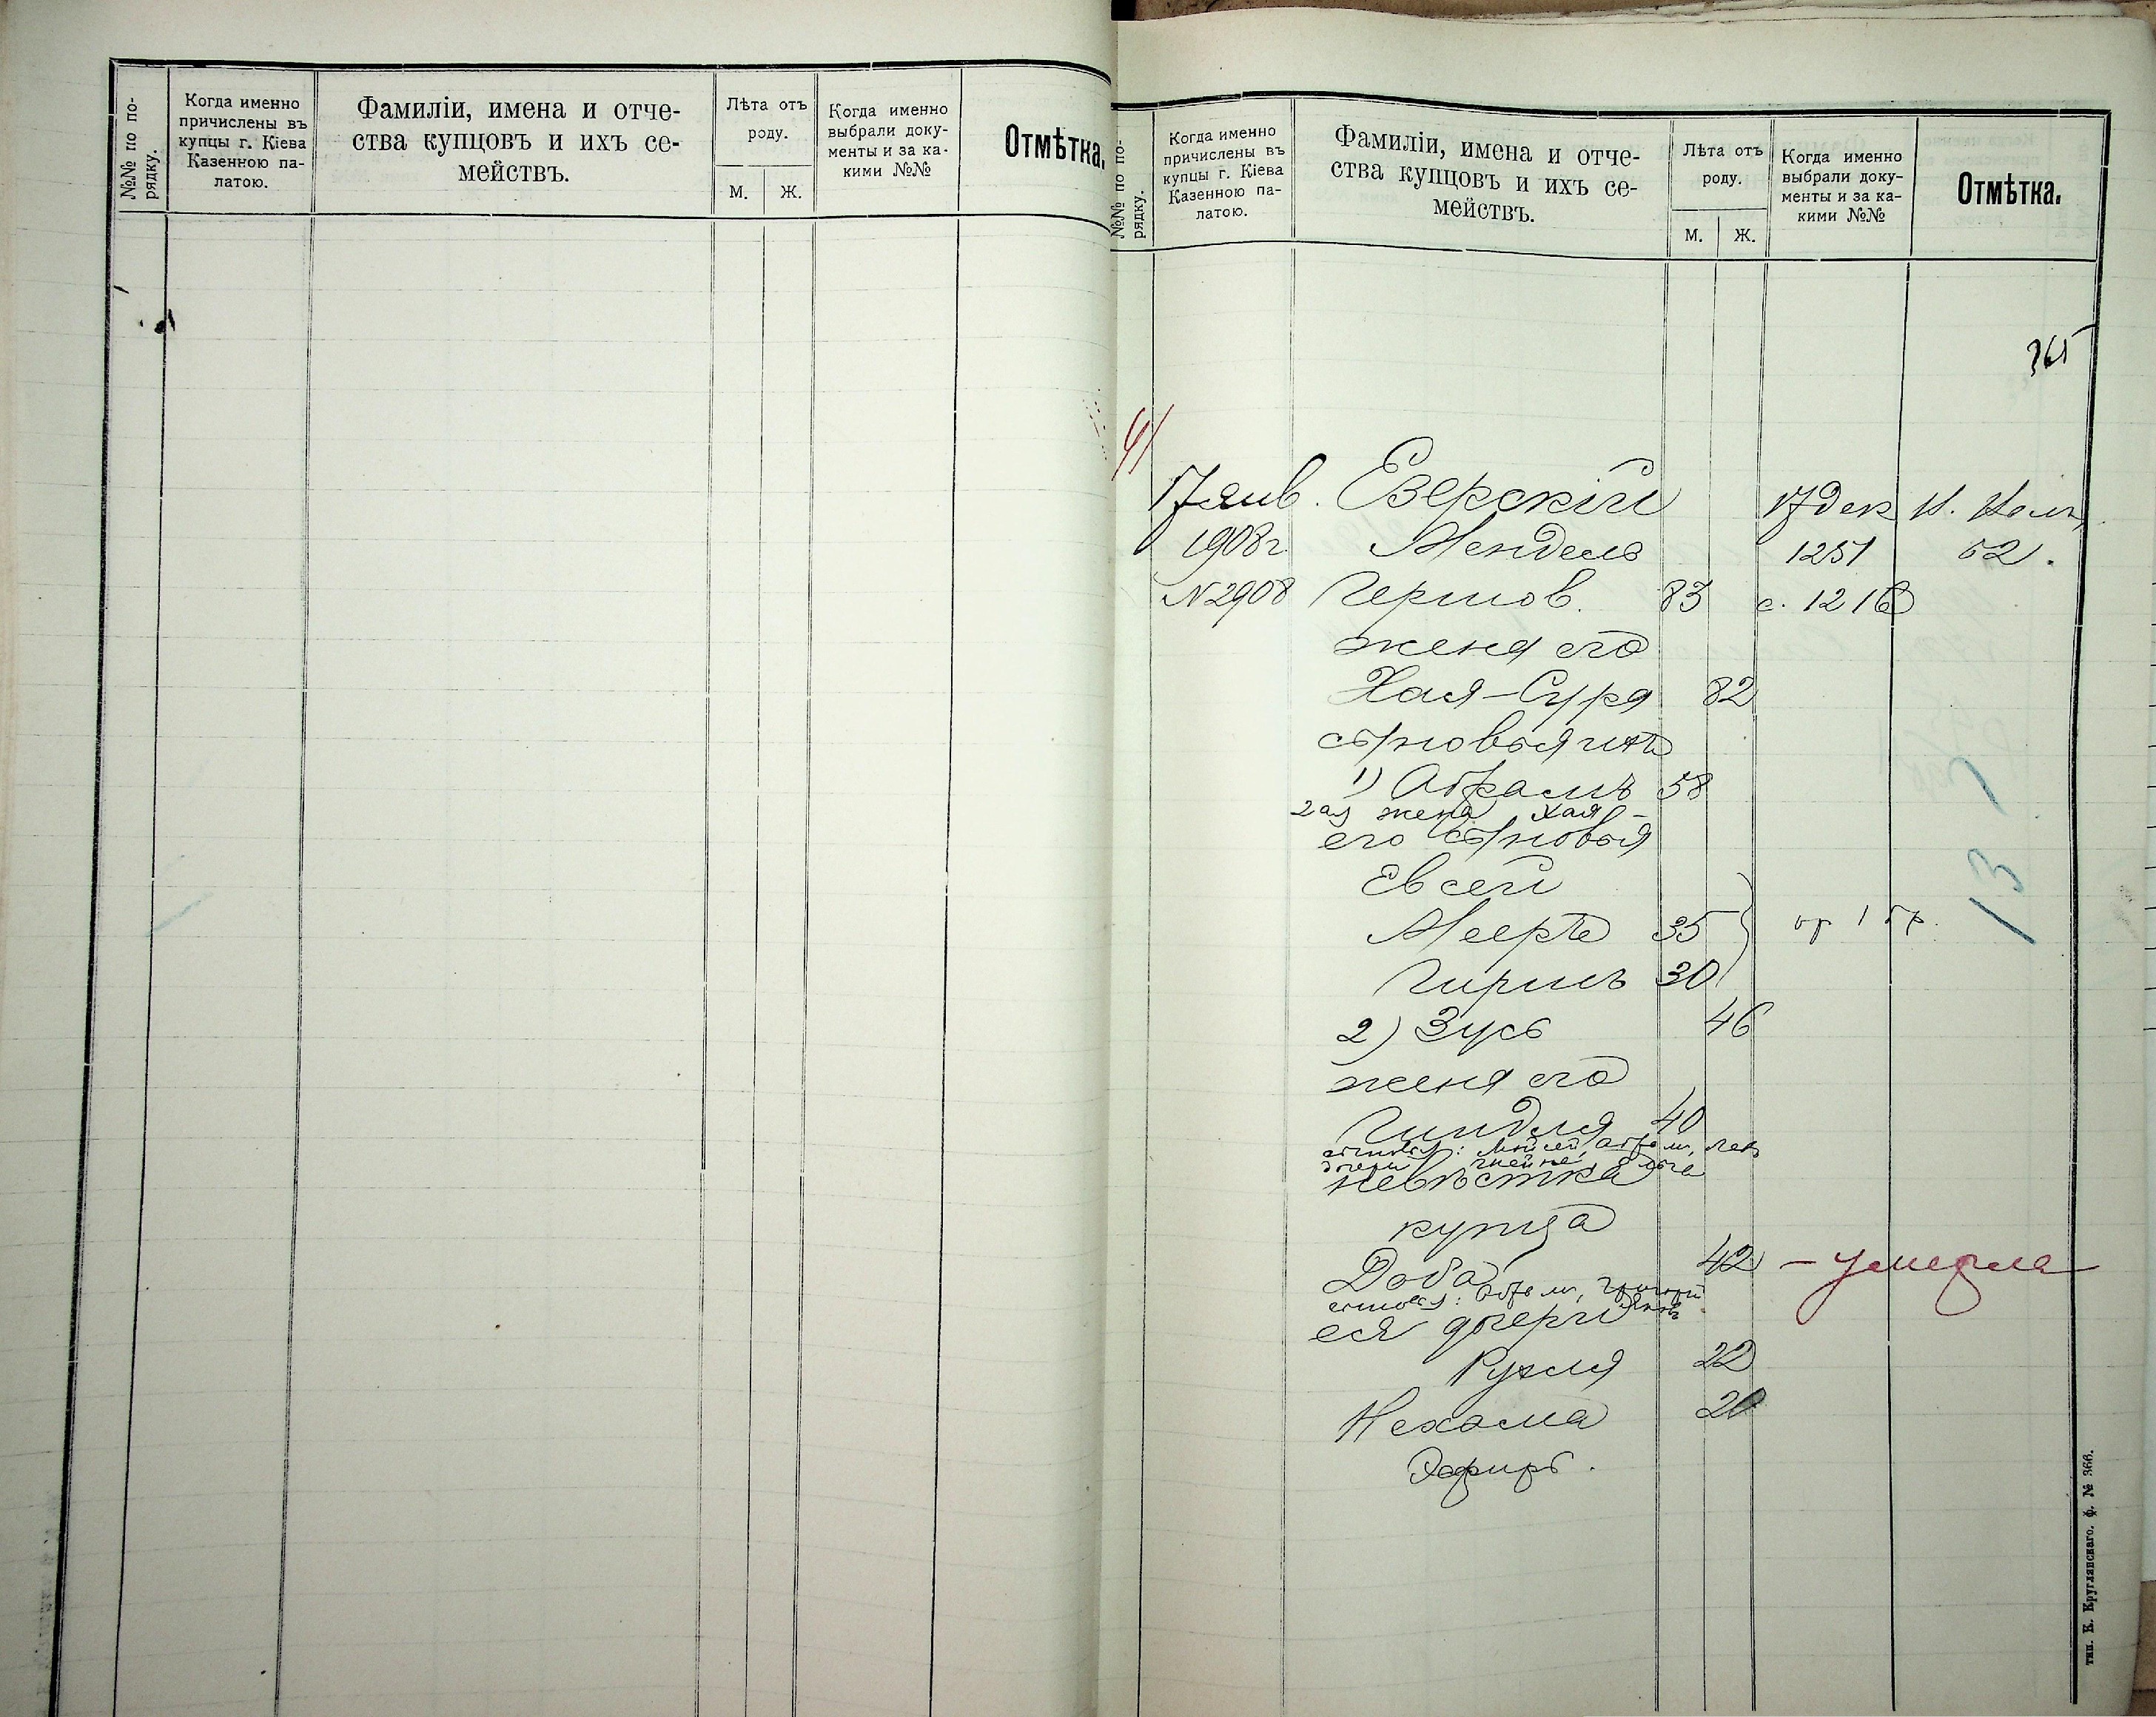 №№ по по-
рядку.
Когда именно
причислены въ
купцы г. Кіева
Казенною па-
латою.
Фамиліи, имена и отче-
ства купцовъ и ихъ се-
мействъ.
Лѣта отъ
роду.
М. Ж.
Когда именно
выбрали доку-
менты и за ка-
кими №№
Отмѣтка.
№№ по по-
рядку.
Когда именно
причислены въ
купцы г. Кіева
Казенною па-
латою.
Фамиліи, имена и отче-
ства купцовъ и ихъ се-
мействъ.
Лѣта отъ
роду.
М. Ж.
Когда именно
выбрали доку-
менты и за ка-
кими №№
Отмѣтка.
365
17 янв. Езерскій 17 дек
1908 г. Мендель 1251 52.
N 2908 Гершов. 83 с. 1216
жена его
Хая-Сура 82
сыновья ихъ
1) Абрамъ 58
2ая жена Хая-
его сыновья
Евсей
Мееръ 35
Гиршъ 30
2) Зусь 46
жена его
Гиндля 40
сыновья: Мойсей, Абрам, Лев
дочери
невѣстка
купца
Доба 42 - умерла
сыновья: Абрам, Григорий
ея дочери
Рухля 22
Нехама 20
Эсфирь.
13
тип. К. Круглянскаго. ф. № 366.